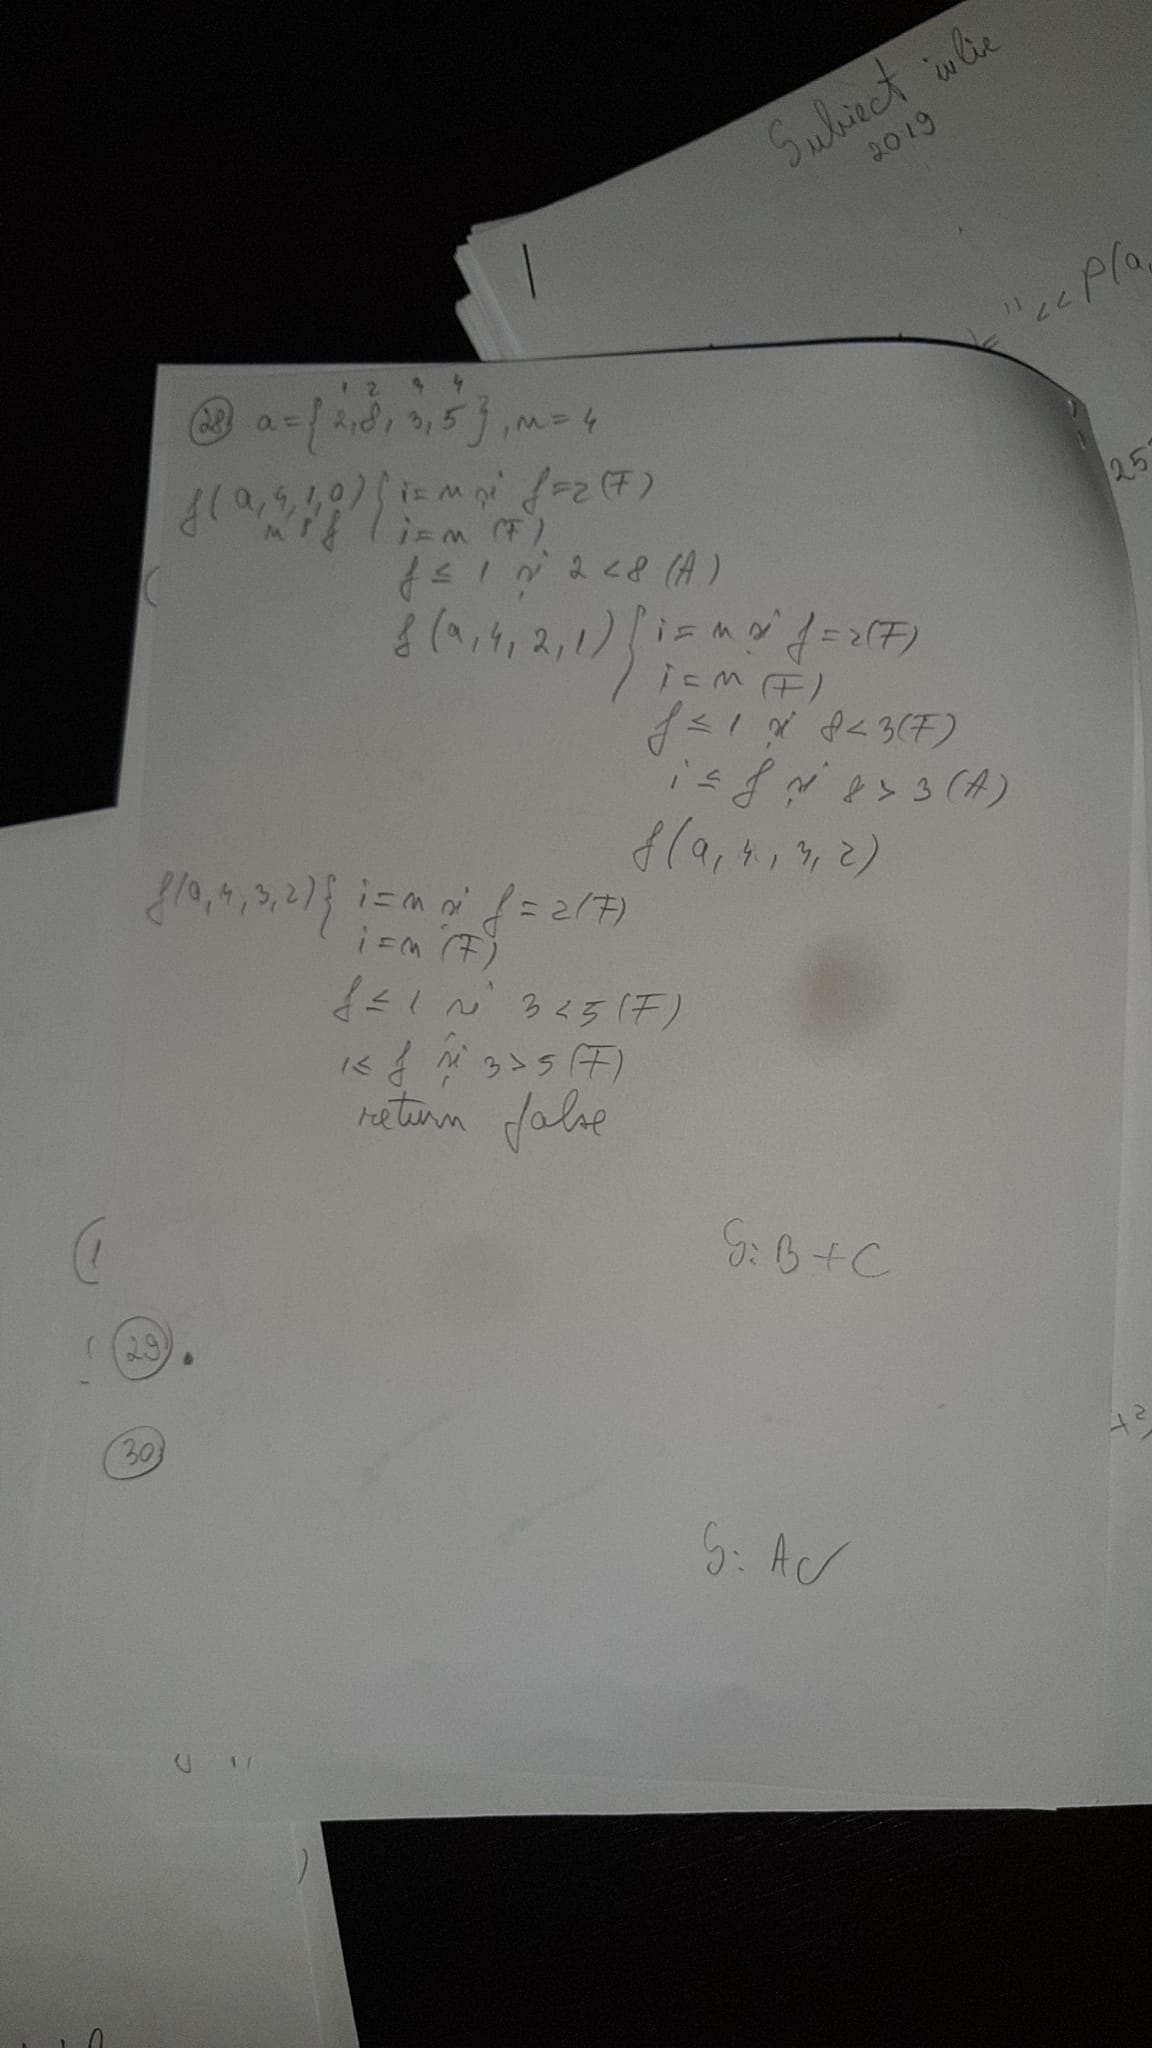 Subiect iulie
2019
"<<p(a,
25
28 a={2,8,3,5}, n=4
1 2 3 4
f(a,4,1,0) { i=n și f=2 (F)
n i f
i=n (F)
f≤1 și 2<8 (A)
f(a,4,2,1) { i=n și f=2 (F)
i=n (F)
f≤1 și 8<3 (F)
i≤f și 8>3 (A)
f(a,4,3,2)
f(a,4,3,2) { i=n și f=2 (F)
i=n (F)
f≤1 și 3<5 (F)
1≤f și 3>5 (F)
return false
S: B+C
29.
30
S: A✓